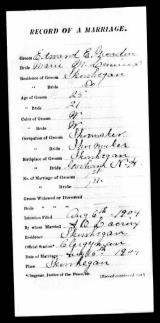 RECORD OF A MARRIAGE.
Groom Edward E.
Bride Marie M.
Residence of Groom Skowhegan
" Bride Do
Age of Groom 25
" Bride 21
Color of Groom W
" Bride W
Occupation of Groom Shoemaker
" Bride Shoeworker
Birthplace of Groom Skowhegan
" Bride N.H.
No. of Marriage of Groom 1st
" Bride 1st
Groom Widowed or Divorced
Bride " "
Intention Filed Aug 6th 1904
By whom Married
Residence Skowhegan
Official Station Clergyman
Date of Marriage 1904
Place Skowhegan